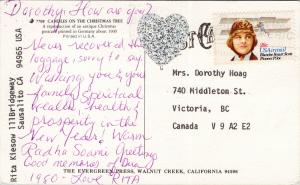 Dorothy: How are you?
7708 CANDLES ON THE CHRISTMAS TREE
A reproduction of an antique Christmas
postcard printed in Germany about 1900
Printed in U.S.A.
Never recovered the
luggage, sorry to say.
Wishing you & your
family Spiritual
wealth, health &
prosperity in the
New Year! Warm
Radha Soami Greetings
Good memories of
1980 - Love RITA
Rita Klesow 111Bridgeway
Sausalito CA 94965 USA
USAirmail
Mrs. Dorothy Hoag
740 Middlem St.
Victoria, BC
Canada V 9 A2 E2
THE EVERGREEN PRESS, WALNUT CREEK, CALIFORNIA 94596